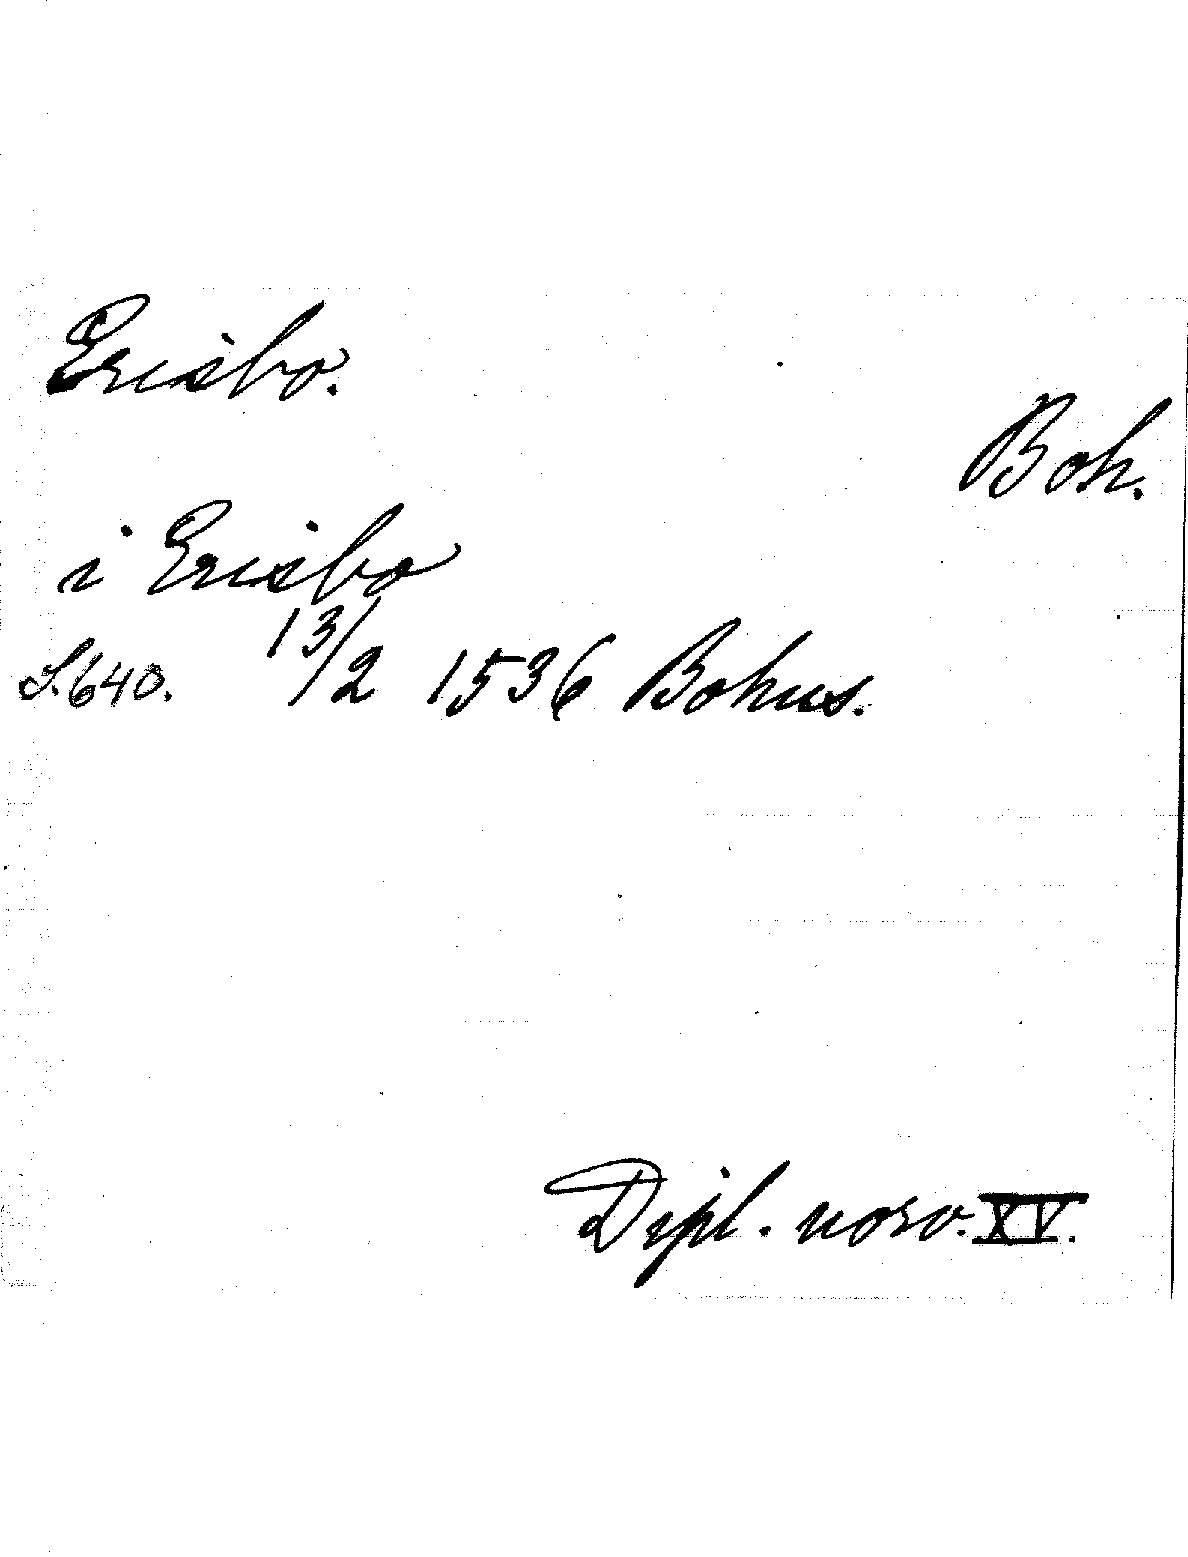 Erisbo.
Boh.
i Erisbo
S. 640. 13/2 1536 Bohus.
Dipl. norv. XV.